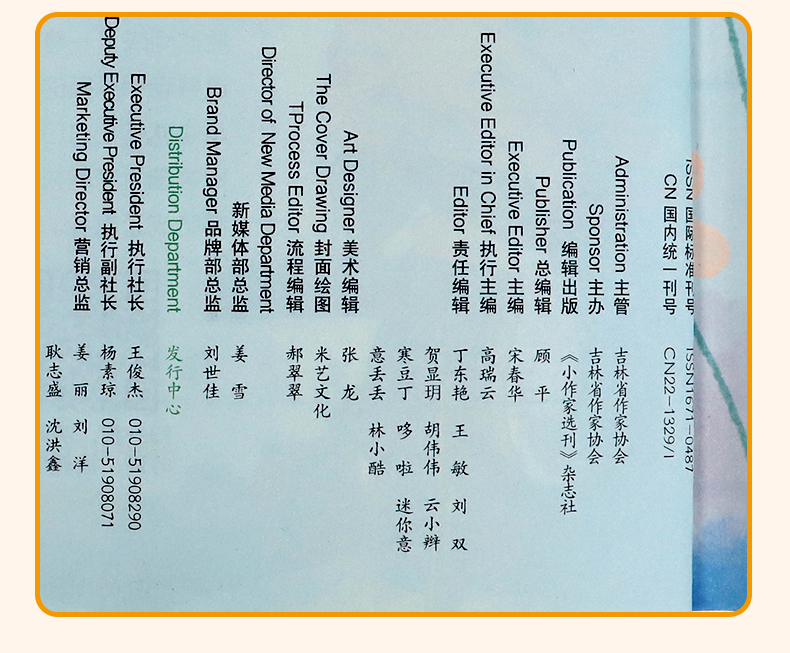 ISSN 国际标准刊号 ISSN1671-0487
CN 国内统一刊号 CN22-1329/I
Administration 主管 吉林省作家协会
Sponsor 主办 吉林省作家协会
Publication 编辑出版 《小作家选刊》杂志社
Publisher 总编辑 顾 平
Executive Editor 主编 宋春华
Executive Editor in Chief 执行主编 高瑞云
Editor 责任编辑 丁东艳 王 敏 刘 双
贺显玥 胡伟伟 云小辫
寒豆丁 哆 啦 迷你意
意丢丢 林小酷
Art Designer 美术编辑 张 龙
The Cover Drawing 封面绘图 米艺文化
TProcess Editor 流程编辑 郝翠翠
Director of New Media Department
新媒体部总监 姜 雪
Brand Manager 品牌部总监 刘世佳
Distribution Department 发行中心
Executive President 执行社长 王俊杰 010-51908290
Deputy Executive President 执行副社长 杨素琼 010-51908071
Marketing Director 营销总监 姜 丽 刘 洋
耿志盛 沈洪鑫